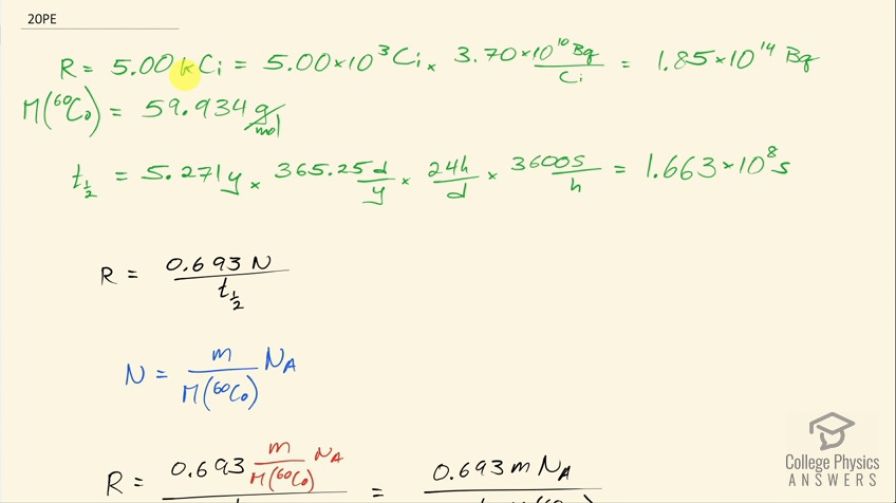 20PE
R = 5.00 kCi = 5.00×10³ Ci × 3.70×10¹⁰ Bq/Ci = 1.85×10¹⁴ Bq
M(⁶⁰Co) = 59.934 g/mol
t½ = 5.271 y × 365.25 d/y × 24h/d × 3600s/h = 1.663×10⁸ s
R = 0.693 N / t½
N = m / M(⁶⁰Co) N_A
R = 0.693 m / M(⁶⁰Co) N_A = 0.693 m N_A
College Physics
ANSWERS